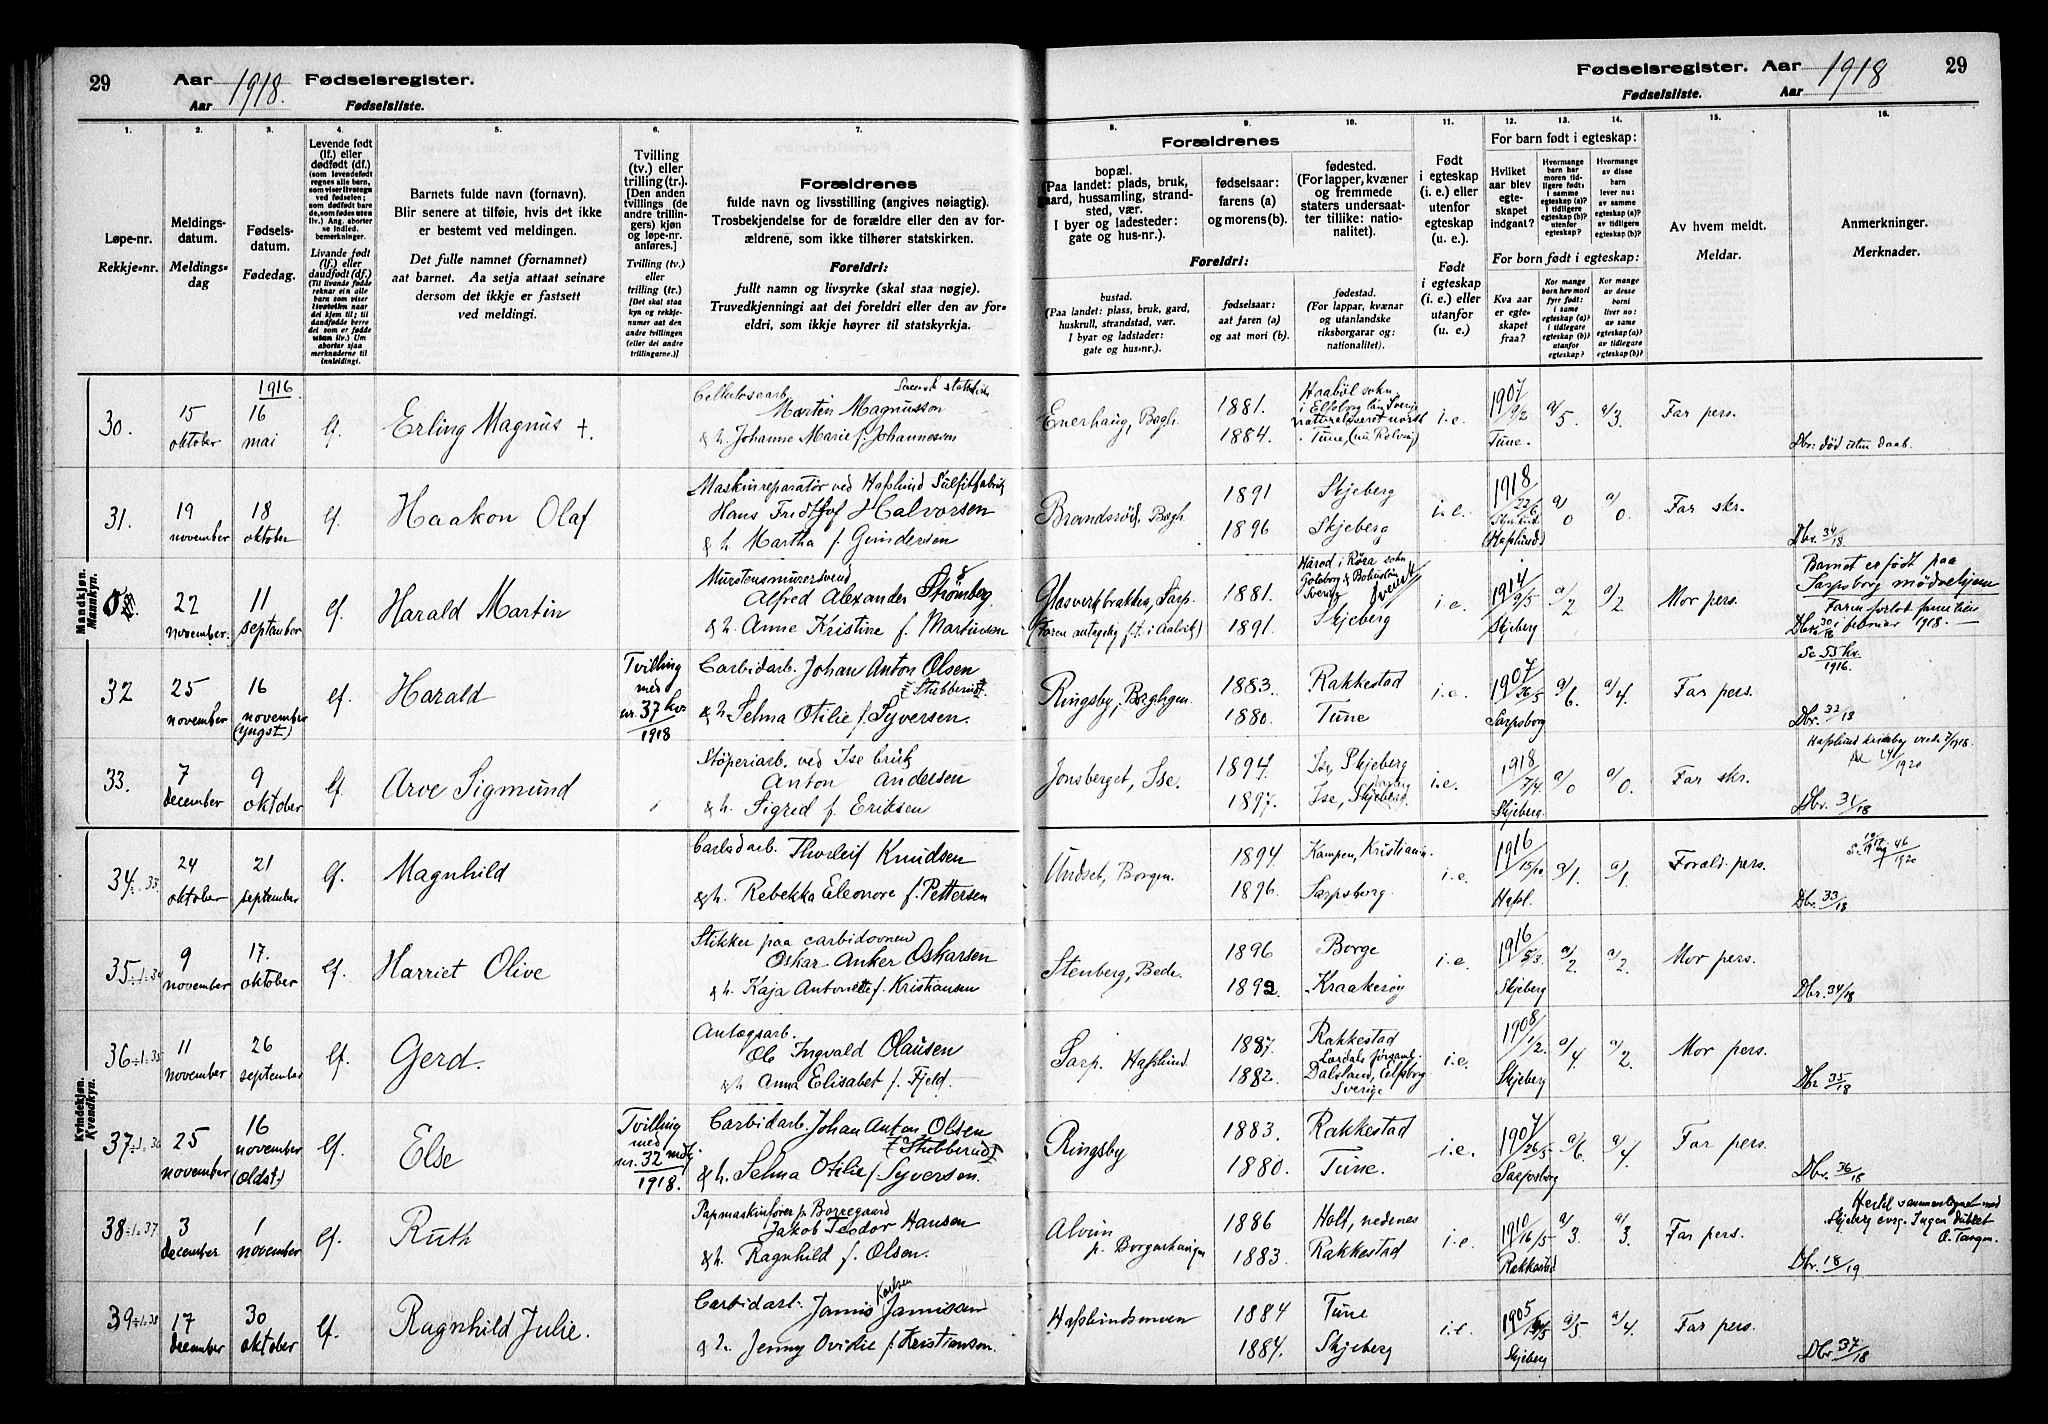 29
Aar 1918. Fødselsregister.
Aar Fødselsliste.
Fødselsregister. Aar 1918
Fødselsliste. Aar
29
1.
Løpe-nr.
Rekkje-nr.
2.
Meldings-
datum.
Meldings-
dag
3.
Fødsels-
datum.
Fødedag.
4.
Levende født
(lf.) eller
dødfødt (df.)
Livande født
(lf.) eller
daudfødt (df.)
5.
Barnets fulde navn (fornavn).
Blir senere at tilføie, hvis det ikke
er bestemt ved meldingen.
Det fulle namnet (fornamnet)
aat barnet. Aa setja attaat seinare
dersom det ikkje er fastsett
ved meldingi.
6.
Tvilling
(tv.) eller
trilling (tr.)
[Den anden
tvillings (de
andre trillin-
gers) kjøn
og løpe-nr.
anføres.]
Tvilling (tv.)
eller
trilling (tr.)
[Det skal staa
kyn og rekkje-
numer aat den
andre tvillingen
(eller dei andre
trillingarne.)]
7.
Forældrenes
fulde navn og livsstilling (angives nøiagtig).
Trosbekjendelse for de forældre eller den av for-
ældrene, som ikke tilhører statskirken.
Foreldri:
fullt namn og livsyrke (skal staa nøgje).
Truvedkjenningi aat dei foreldri eller den av for-
eldri, som ikkje høyrer til statskyrkja.
Forældrenes
8.
bopæl.
(Paa landet: plads, bruk,
gaard, hussamling, strand-
sted, vær.
I byer og ladesteder:
gate og hus-nr.).
9.
fødselsaar:
farens (a)
og morens (b).
10.
fødested.
(For lapper, kvæner
og fremmede
staters undersaat-
ter tillike: natio-
nalitet).
Foreldri:
bustad.
(Paa landet: plass, bruk, gard,
huskrull, strandstad, vær.
I byar og ladstader:
gate og hus-nr.).
fødselsaar:
aat faren (a)
og aat mori (b).
fødestad.
(For lappar, kvænar
og utanlandske
riksborgarar og:
nationalitet).
11.
Født
i egteskap
(i. e.) eller
utenfor
egteskap
(u. e.).
Født
i egteskap
(i. e.) eller
utanfor
(u. e.).
12. 13. 14.
For barn født i egteskap:
Hvilket
aar blev
egte-
skapet
indgaat?
For born født i egteskap:
Kva aar
er egte-
skapet
fraa?
15.
Av hvem meldt.
Meldar.
16.
Anmerkninger.
Merknader.
Mandskjøn.
Mannkyn.
30.
15
oktober
1916
16
mai
lf.
Erling Magnus +.
Cellulosearb.
Martin Magnusson
& h. Johanne Marie f. Johannesen
Enerhaug, Bøgh.
1881.
1884.
Tune
i.e.
1907
Tune.
a/5.
a/3.
Far pers.
Dbr: død uten daab.
31.
19
november
18
oktober
lf.
Haakon Olaf
Maskinreparatør ved Hafslund Sulfitfabrik
Hans Fridtjof Halvorsen
& h. Martha f. Gundersen
1891
1896
Skjeberg
Skjeberg
i.e.
1918
22/6
(Hafslund)
a/0
a/0.
Far skr.
Dbr. 34/18
22
november.
11
september
lf.
Harald Martin
Murstensmurersvend
Alfred Alexander Strömberg
& h. Anne Kristine f. Martinsen
Glasverkbrakka, Sarp.
(Faren antagelig f.t. i Aalvik)
1881.
1891.
Sverige
Skjeberg
i.e.
1914
9/5
Skjeberg
a/2
a/2
Mor pers.
Barnet er født paa
Sarpsborg mødrehjem
Faren forlot familien
i februar 1918.
Dbr. 30/18
32
25
november
16
november
(yngst)
lf.
Harald
Tvilling
med
nr. 37 kv.
1918
Carbidarb. Johan Anton Olsen
Stubberud
& h. Selma Otilie f. Syversen.
Ringsby, Borghgen.
1883.
1880.
Rakkestad
Tune
i.e.
1907
26/5
Sarpsborg
a/6.
a/4.
Far pers.
Se 55 kv.
1916.
Dbr. 32/18
33.
7
december
9
oktober
lf.
Arve Sigmund
Støperiarb. ved Ise bruk
Anton Andersen
& h. Sigrid f. Eriksen
Jonsberget, Ise.
1894.
1897.
Ise, Skjeberg
Ise, Skjeberg.
i.e.
1918
7/4.
Skjeberg.
a/0
a/0.
Far skr.
Dbr. 31/18
Kvindekjøn.
Kvendkyn.
34 ÷1: 33
24
oktober
21
september
lf.
Magnhild
Carbidarb. Thorleif Knudsen
& h. Rebekka Eleonore f. Pettersen
Undset, Borgen.
1894
1896.
Kampen, Kristiania.
Sarpsborg.
i.e.
1916
15/10
Hafsl.
a/1.
a/1.
Foræld. pers.
Dbr. 33/18
35 ÷1: 34
9
november
17.
oktober
lf.
Harriet Olive
Stikker paa carbidovnen
Oskar Anker Oskarsen
& h. Kaja Antonette f. Kristiansen
Stenberg, Bede.
1896
1892.
Borge
Kraakerøy
i.e.
1916
5/3.
Skjeberg
a/2.
a/2.
Mor pers.
Dbr. 34/18
36 ÷1: 35
11
november
26
september
lf.
Gerd.
Anlægsarb.
Ole Ingvald Olausen
& h. Anna Elisabet f. Fjeld.
Sarp. Hafslund
1887.
1882.
Rakkestad
Dalsland, Elfsborg
Sverige
i.e.
1908
1/2.
Skjeberg
a/4.
a/2.
Mor pers.
Dbr 35/18
37 ÷1: 36
25
november
16
november
(ældst)
lf.
Else
Tvilling
med
nr. 32 mdkj.
1918.
Carbidarb. Johan Anton Olsen
Stubberud
& h. Selma Otilie f. Syversen.
Ringsby
1883.
1880.
Rakkestad
Tune.
i.e.
1907
26/5
Sarpsborg
a/6.
a/4.
Far pers.
Dbr. 36/18
38 ÷1: 37
3
december
1
november
lf.
Ruth
Papmaskinfører p. Borregaard
Jakob Teodor Hansen
& h. Ragnhild f. Olsen.
Alvim
p. Borgarhaugen
1886
1883.
Holt, nedenes
Rakkestad
i.e.
1910
16/5
Rakkestad
a/3.
a/3.
Far pers.
Heftet sammenlignet med
Skjeberg evrg. Ingen dublet
O. Tangen.
Dbr. 18/19
39 ÷1: 38
17
december
30
oktober
lf.
Ragnhild Julie.
Carbidarb. Jannis Karlsen Jannisen
& h. Jenny Ovidie f. Kristiansen.
Hafslundsmoen
1884
1884.
Tune
Skjeberg
i.e.
1905
Skjeberg
a/5.
a/4.
Far pers.
Dbr. 37/18